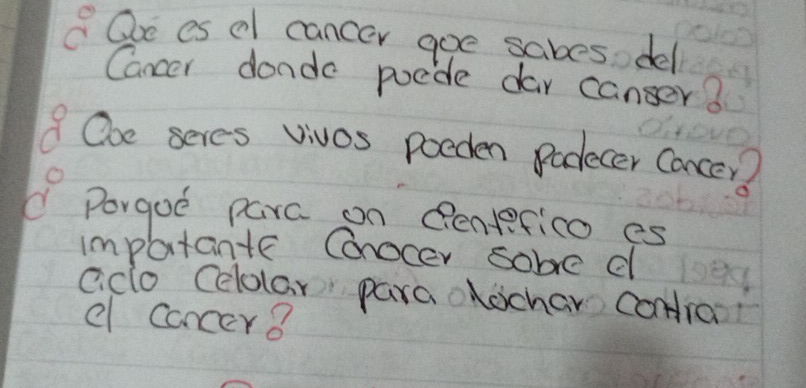 ¿Qué es el cancer que sabes del
Cancer donde puede dar canser?
¿Que seres vivos pueden padecer Cancer?
¿Porqué para un cientifico es
importante Conocer sobre el
ciclo Celular para luchar contra
el cancer?